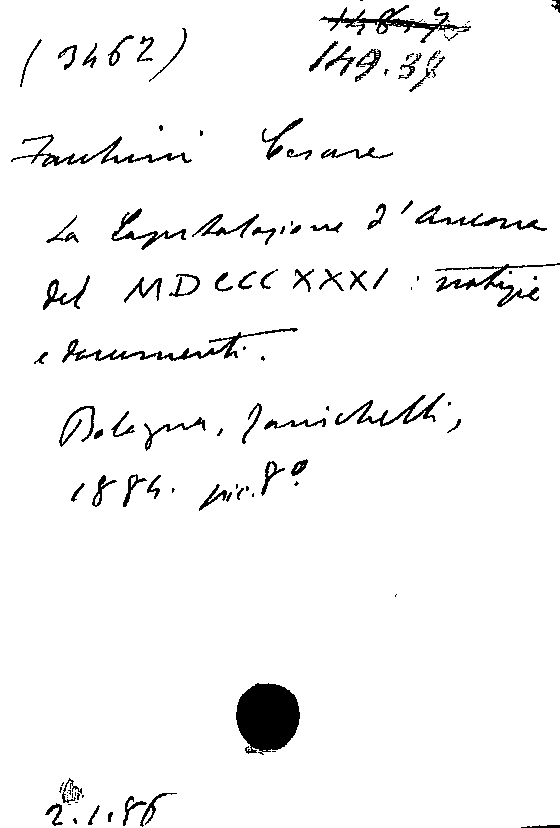 (3462)
149.37
Facchini Cesare
La Capitolazione d'Ancona
del MDCCCXXXI : notizie
e documenti.
Bologna, Zanichelli,
1884. pic. 8º
2.1.86